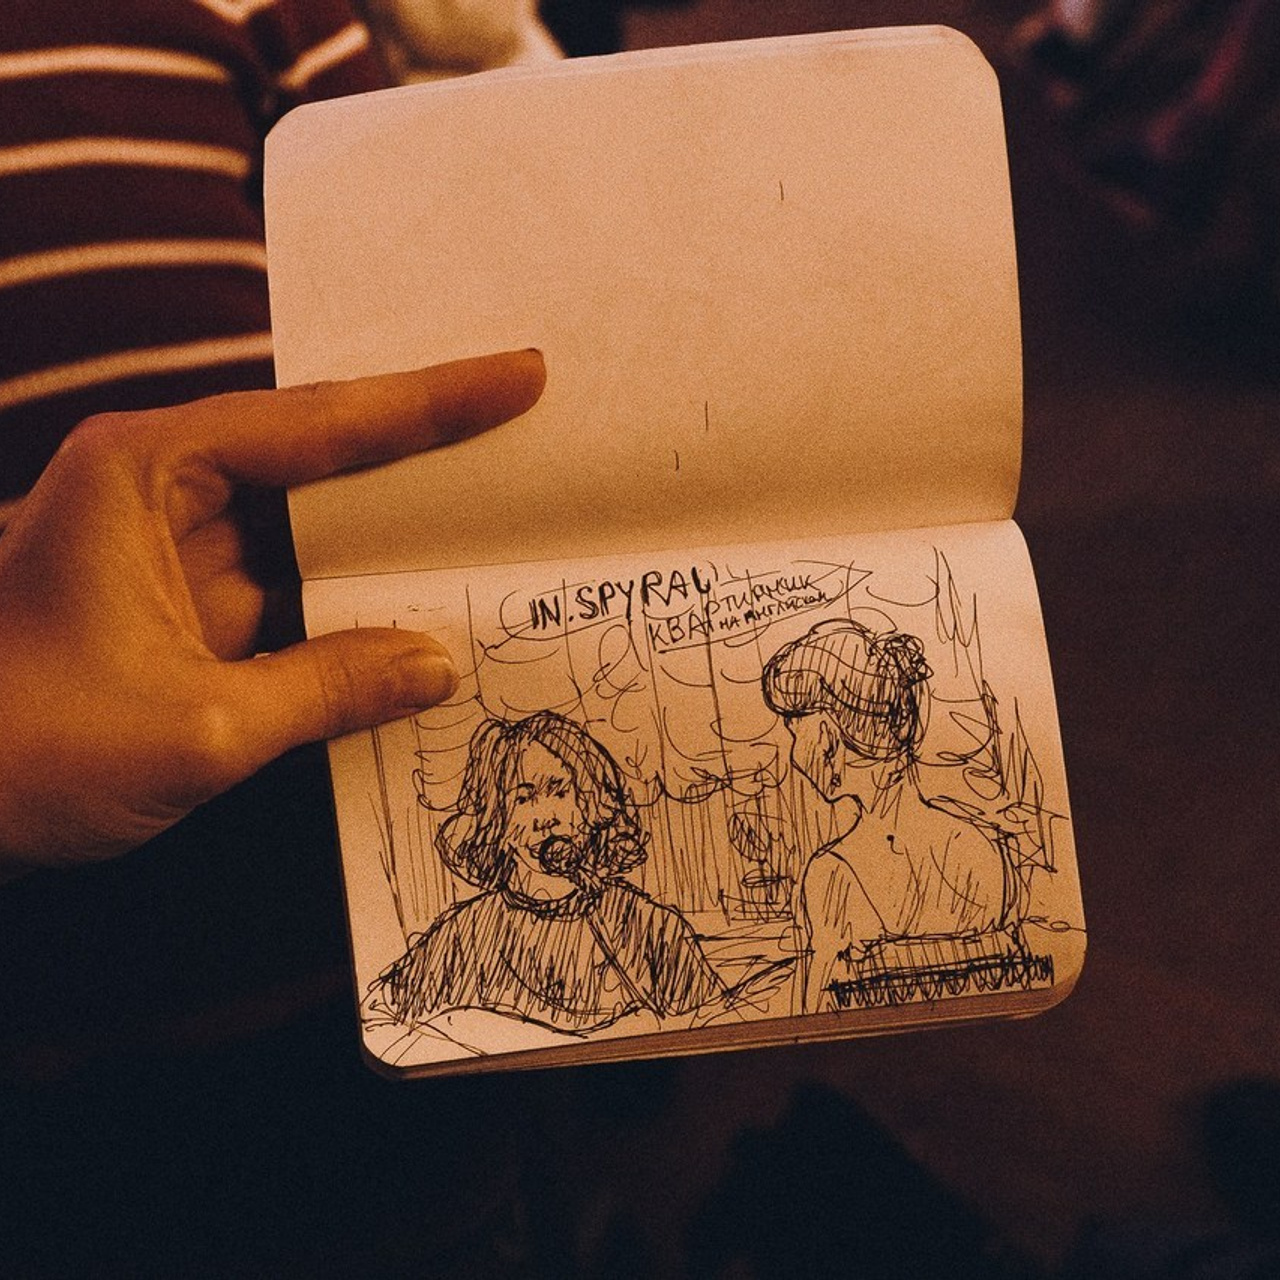 IN.SPYRAL
КВАРТИРНИК
НА АНГЛИЙСКОМ